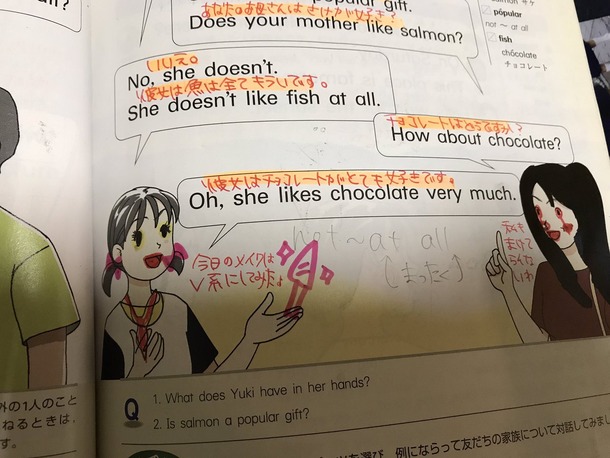 popular gift.
あなたのお母さんはさけが好き?
Does your mother like salmon?
pópular
not ~ at all
fish
chócolate
チョコレート
いいえ。
No, she doesn't.
彼女は魚は全てもうしです。
She doesn't like fish at all.
チョコレートはどうですか?
How about chocolate?
彼女はチョコレートがとても好きです。
Oh, she likes chocolate very much.
not ~ at all
まったく
今日のメイクは
V系にしてみたよ
Q
1. What does Yuki have in her hands?
2. Is salmon a popular gift?
外の1人のこと
ねるときは,
す。
例にならって友だちの家族について対話してみまし